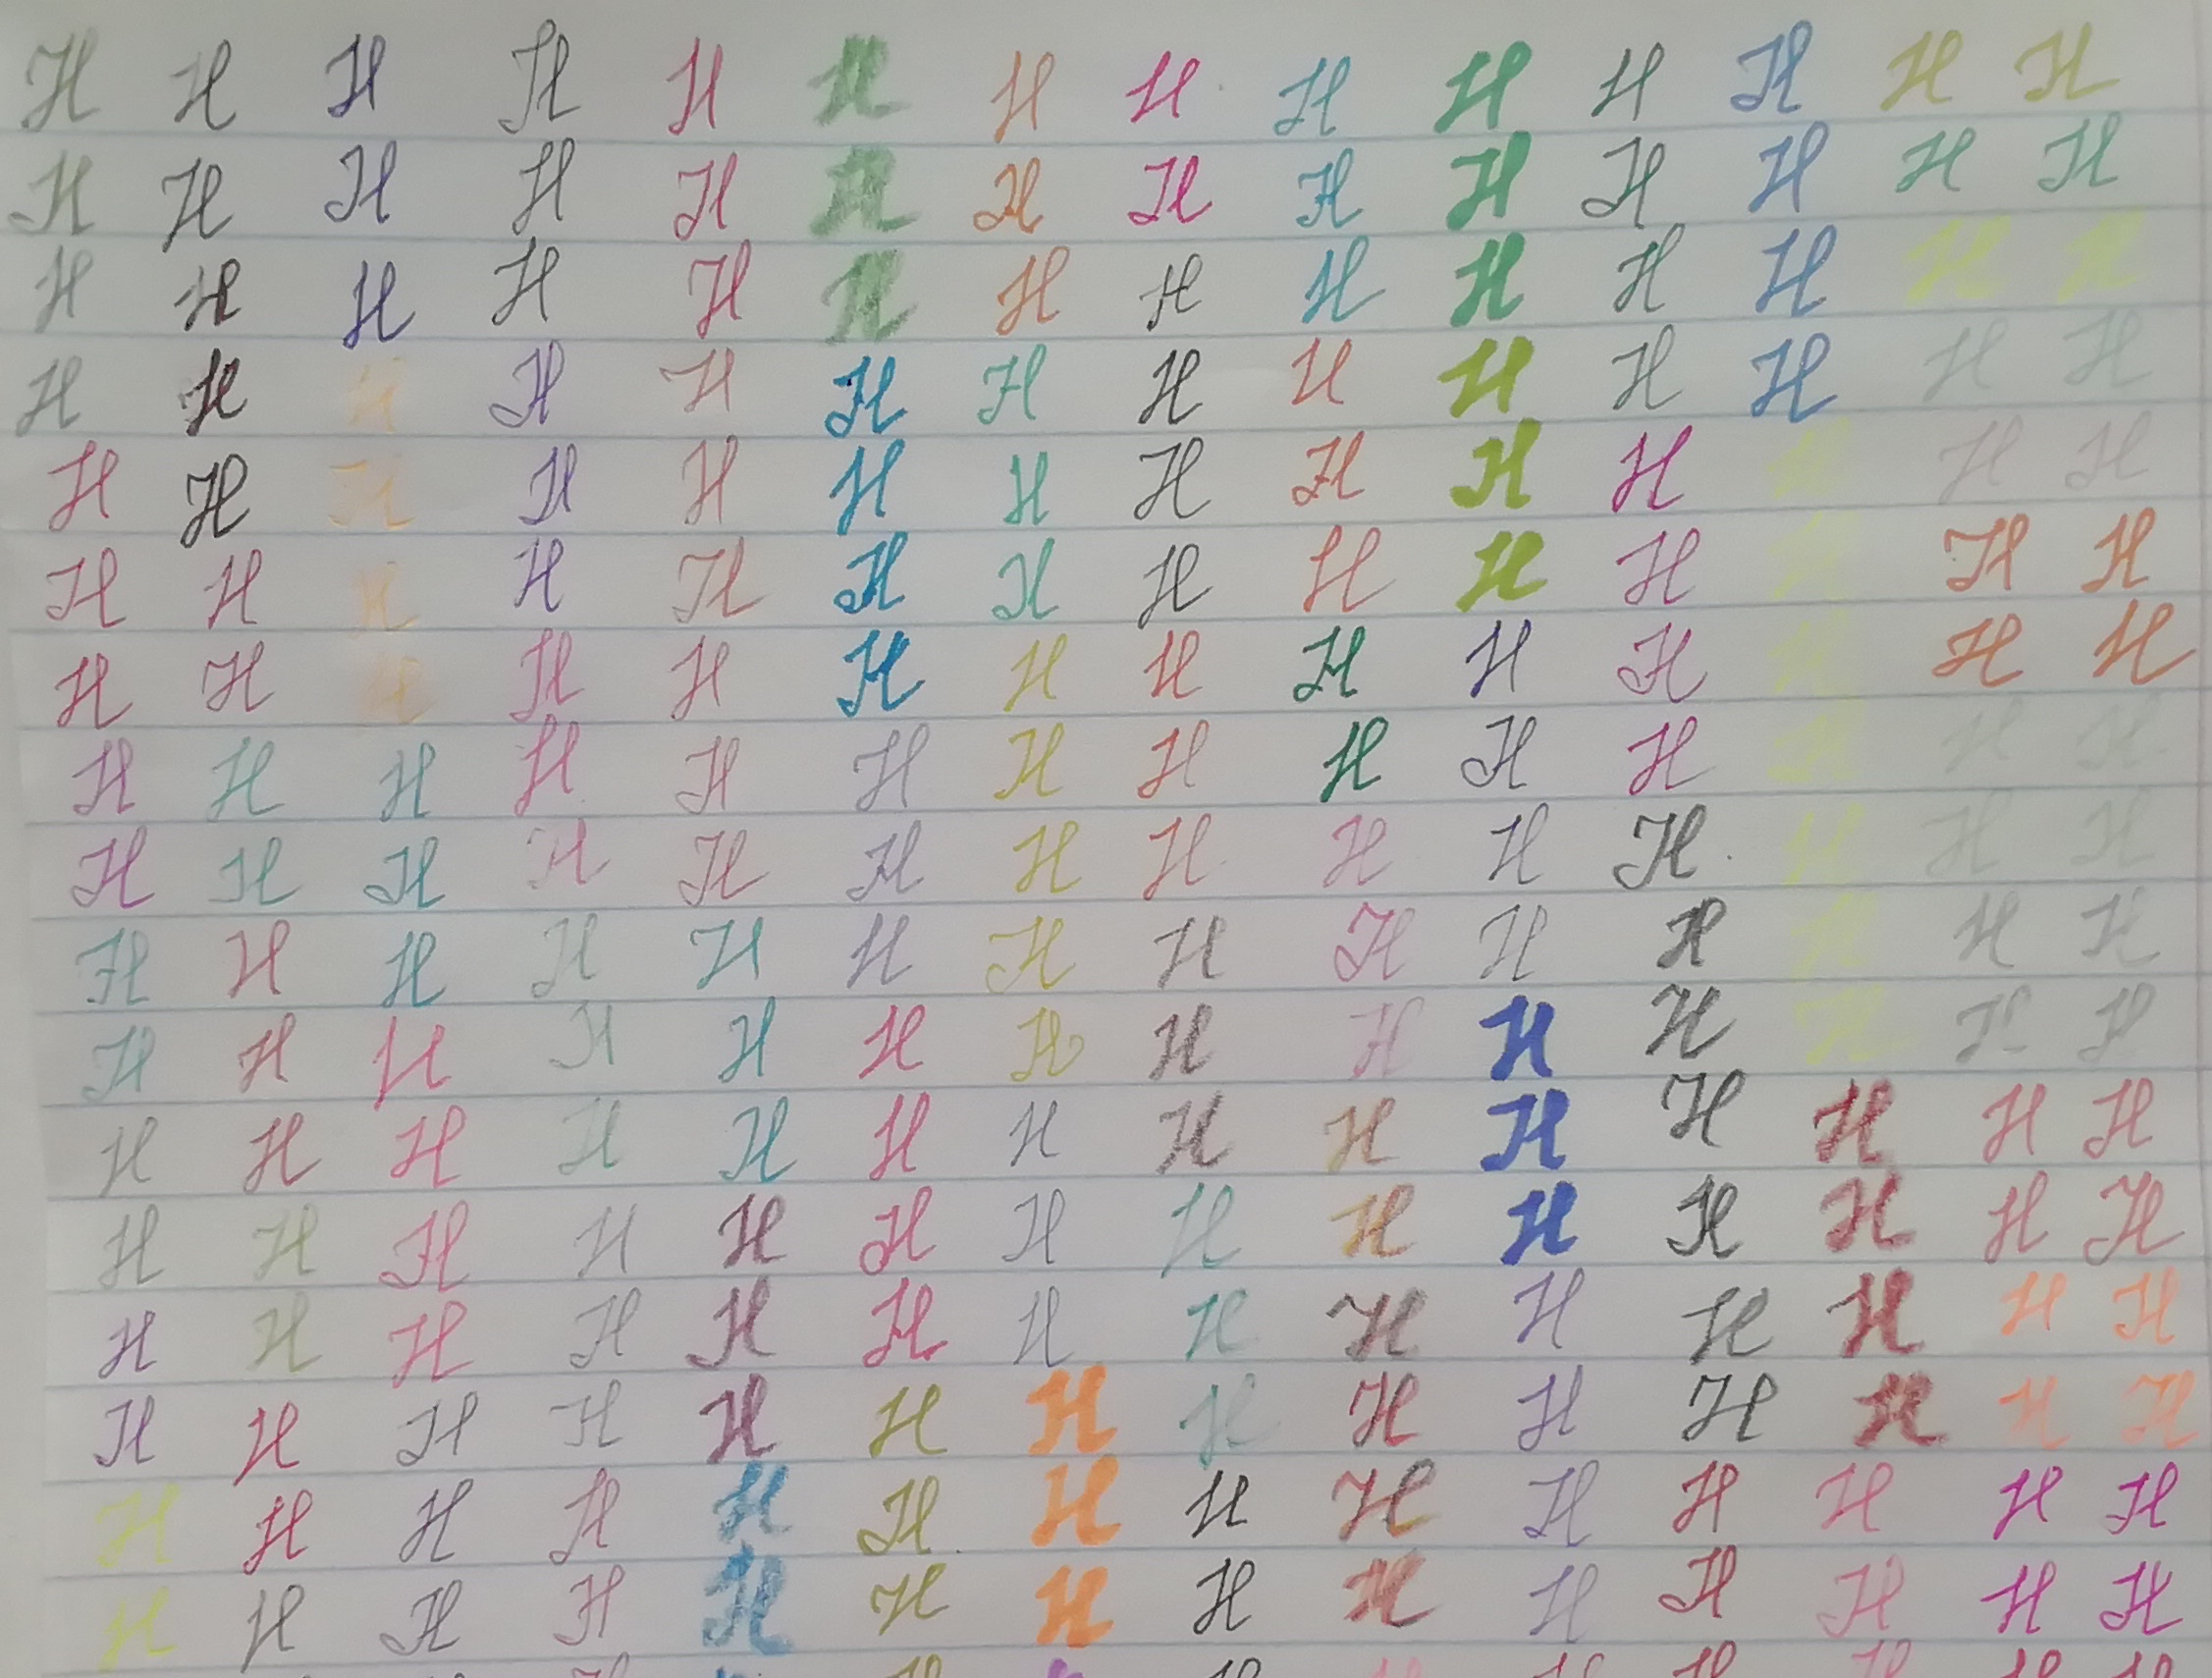 H H H H H H H H H H H H H H
H H H H H H H H H H H H H H
H H H H H H H H H H H H H H
H H H H H H H H H H H H H H
H H H H H H H H H H H H H H
H H H H H H H H H H H H H H
H H H H H H H H H H H H H H
H H H H H H H H H H H H H H
H H H H H H H H H H H H H H
H H H H H H H H H H H H H H
H H H H H H H H H H H H H H
H H H H H H H H H H H H H H
H H H H H H H H H H H H H H
H H H H H H H H H H H H H H
H H H H H H H H H H H H H H
H H H H H H H H H H H H H H
H H H H H H H H H H H H H H